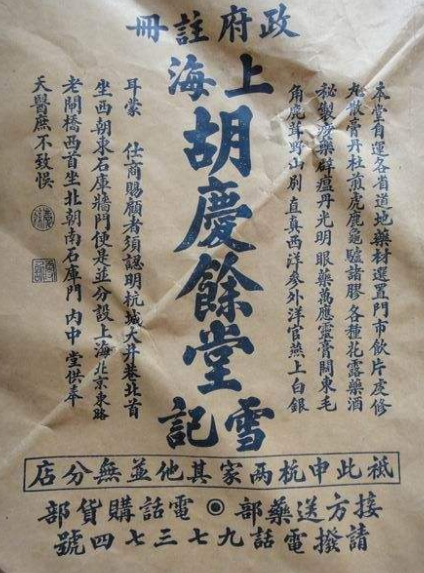 政府註冊
上海
胡慶餘堂
雪記
本堂自運各省道地藥材選置門市飲片虔修
丸散膏丹杜煎虎鹿龜驢諸膠各種花露藥酒
秘製痧藥辟瘟丹光明眼藥萬應靈膏關東毛
角鹿茸野山別直真西洋參外洋官燕上白銀
耳蒙 仕商賜顧者須認明杭城大井巷北首
坐西朝東石庫牆門便是並分設上海北京東路
老閘橋西首坐北朝南石庫門內中堂供奉
天醫庶不致悞
祗此申杭兩家其他並無分店
接方送藥部 ◉ 電話購貨部
請撥電話九七三七四號